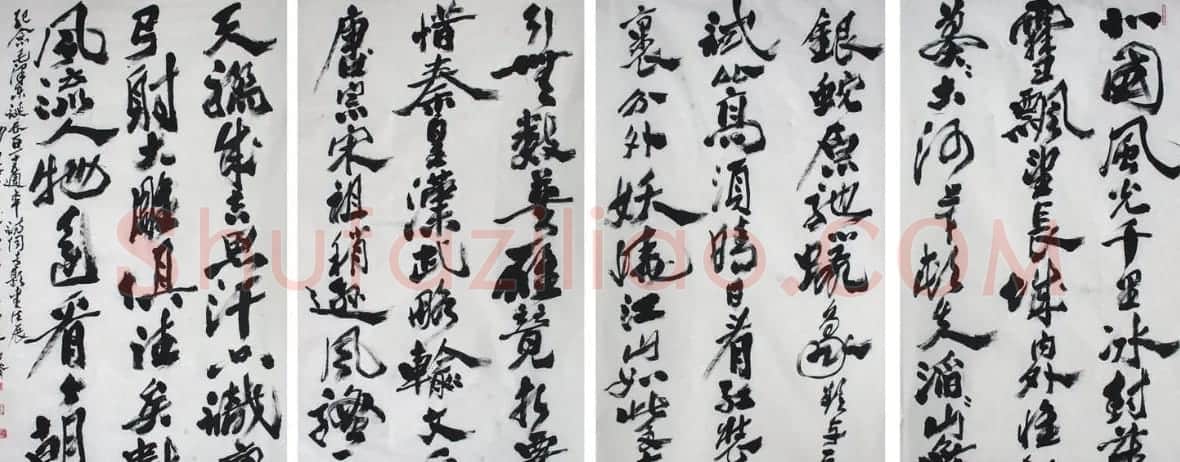 北國風光千里冰封
雪飄望長城內外惟
莽莽大河上下頓失滔滔山舞
銀蛇原馳蠟象欲與天
試比高須晴日看紅裝
裹分外妖嬈江山如此多
引無數英雄競折要
惜秦皇漢武略輸文
唐宗宋祖稍遜風騷
天驕成吉思汗只識彎
弓射大雕俱往矣數
風流人物還看今朝
紀念毛澤東誕辰百一十週年 書法展
Shufaziliao.COM